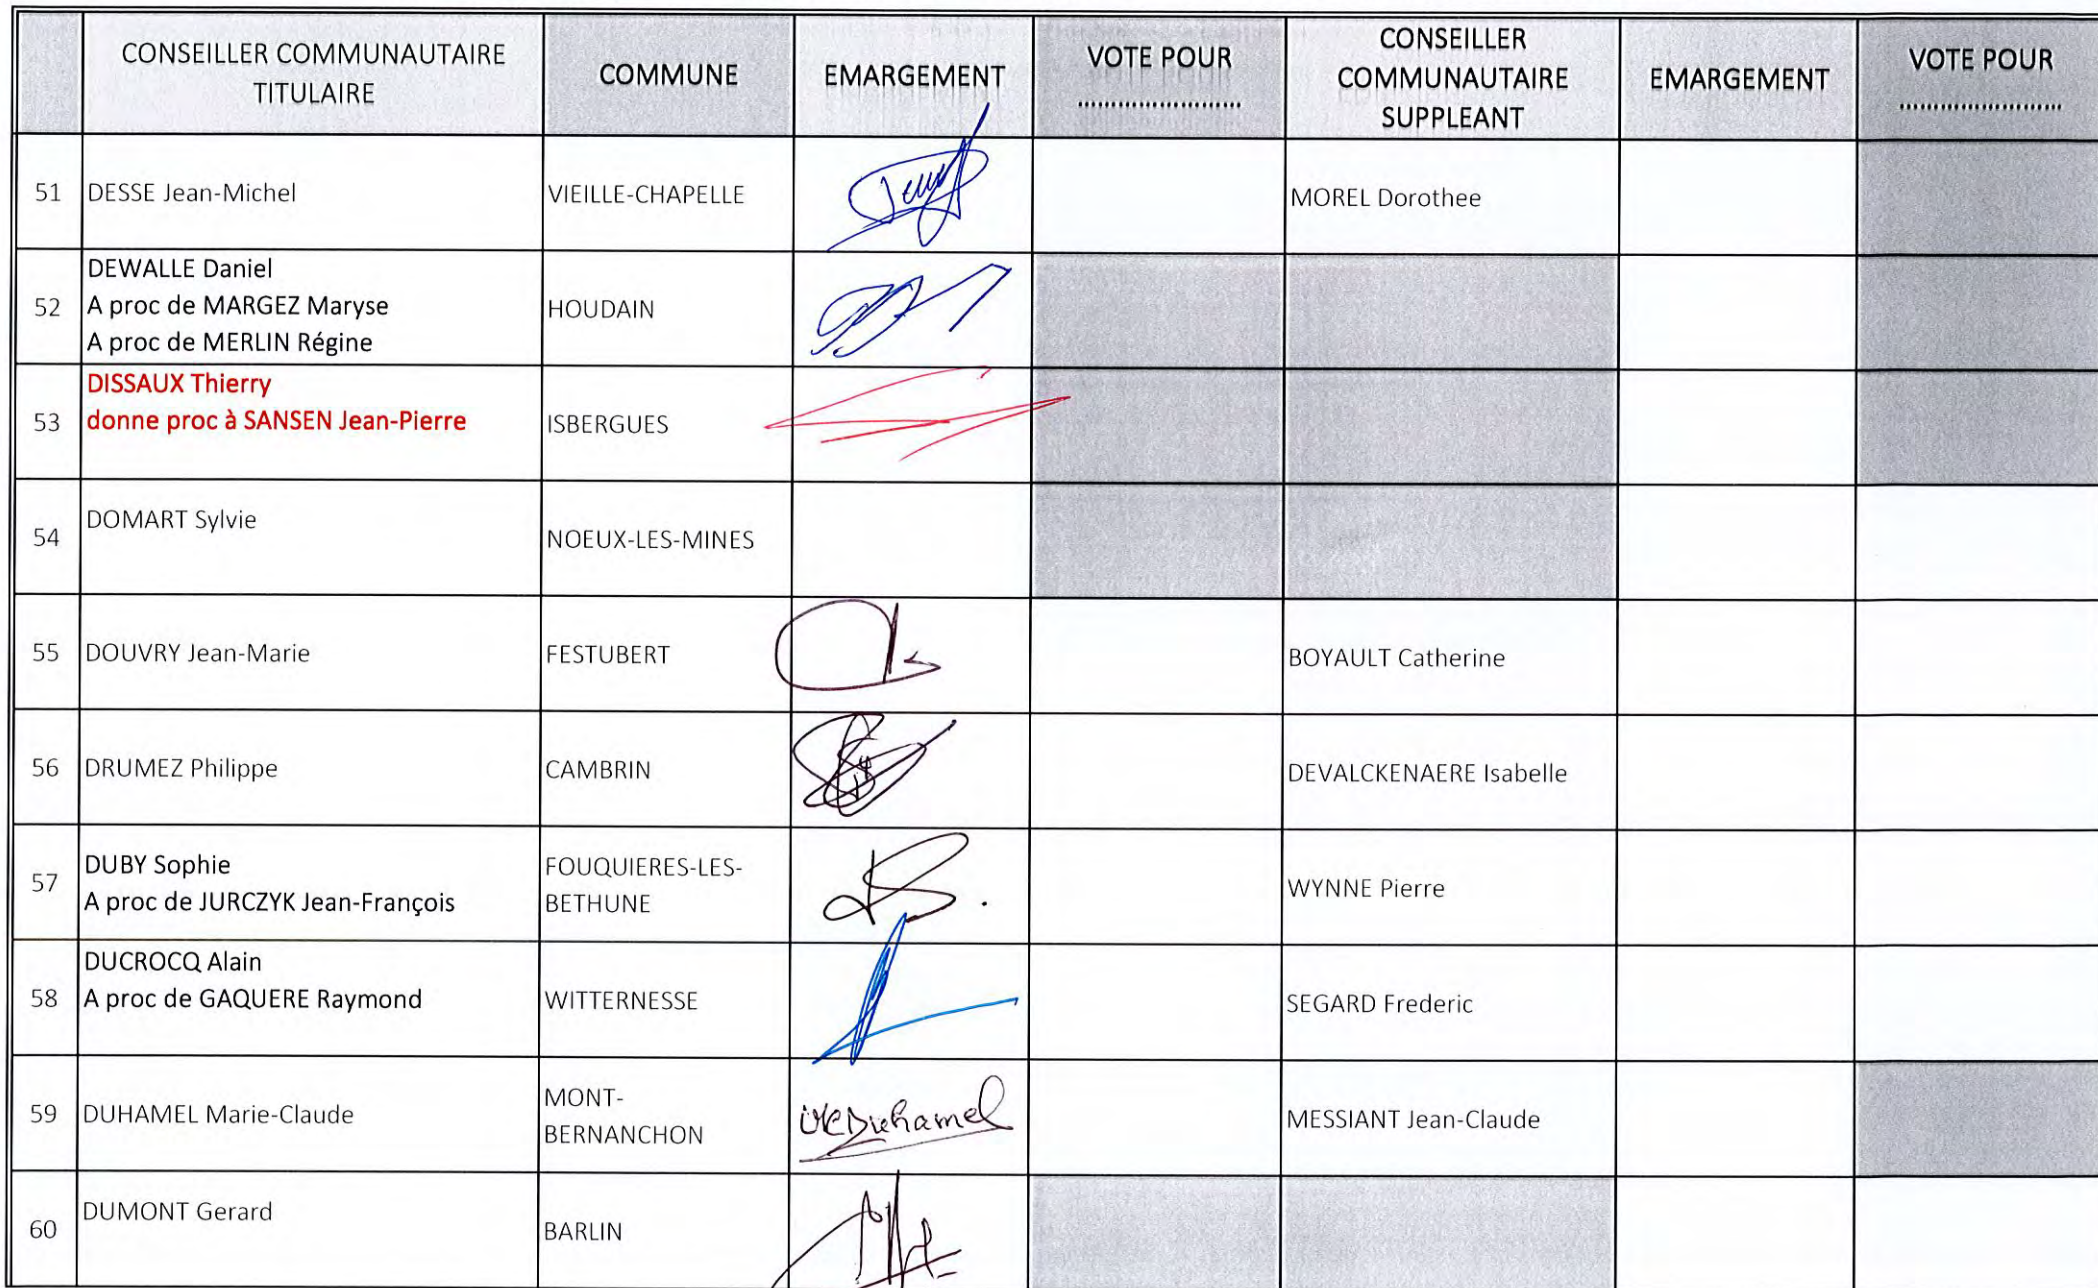 CONSEILLER COMMUNAUTAIRE
TITULAIRE
COMMUNE
EMARGEMENT
VOTE POUR
........................
CONSEILLER
COMMUNAUTAIRE
SUPPLEANT
EMARGEMENT
VOTE POUR
........................
51 DESSE Jean-Michel VIEILLE-CHAPELLE MOREL Dorothee
52 DEWALLE Daniel
A proc de MARGEZ Maryse
A proc de MERLIN Régine
HOUDAIN
53 DISSAUX Thierry
donne proc à SANSEN Jean-Pierre
ISBERGUES
54 DOMART Sylvie NOEUX-LES-MINES
55 DOUVRY Jean-Marie FESTUBERT BOYAULT Catherine
56 DRUMEZ Philippe CAMBRIN DEVALCKENAERE Isabelle
57 DUBY Sophie
A proc de JURCZYK Jean-François
FOUQUIERES-LES-
BETHUNE
WYNNE Pierre
58 DUCROCQ Alain
A proc de GAQUERE Raymond
WITTERNESSE
SEGARD Frederic
59 DUHAMEL Marie-Claude
MONT-
BERNANCHON
Duhamel
MESSIANT Jean-Claude
60 DUMONT Gerard BARLIN